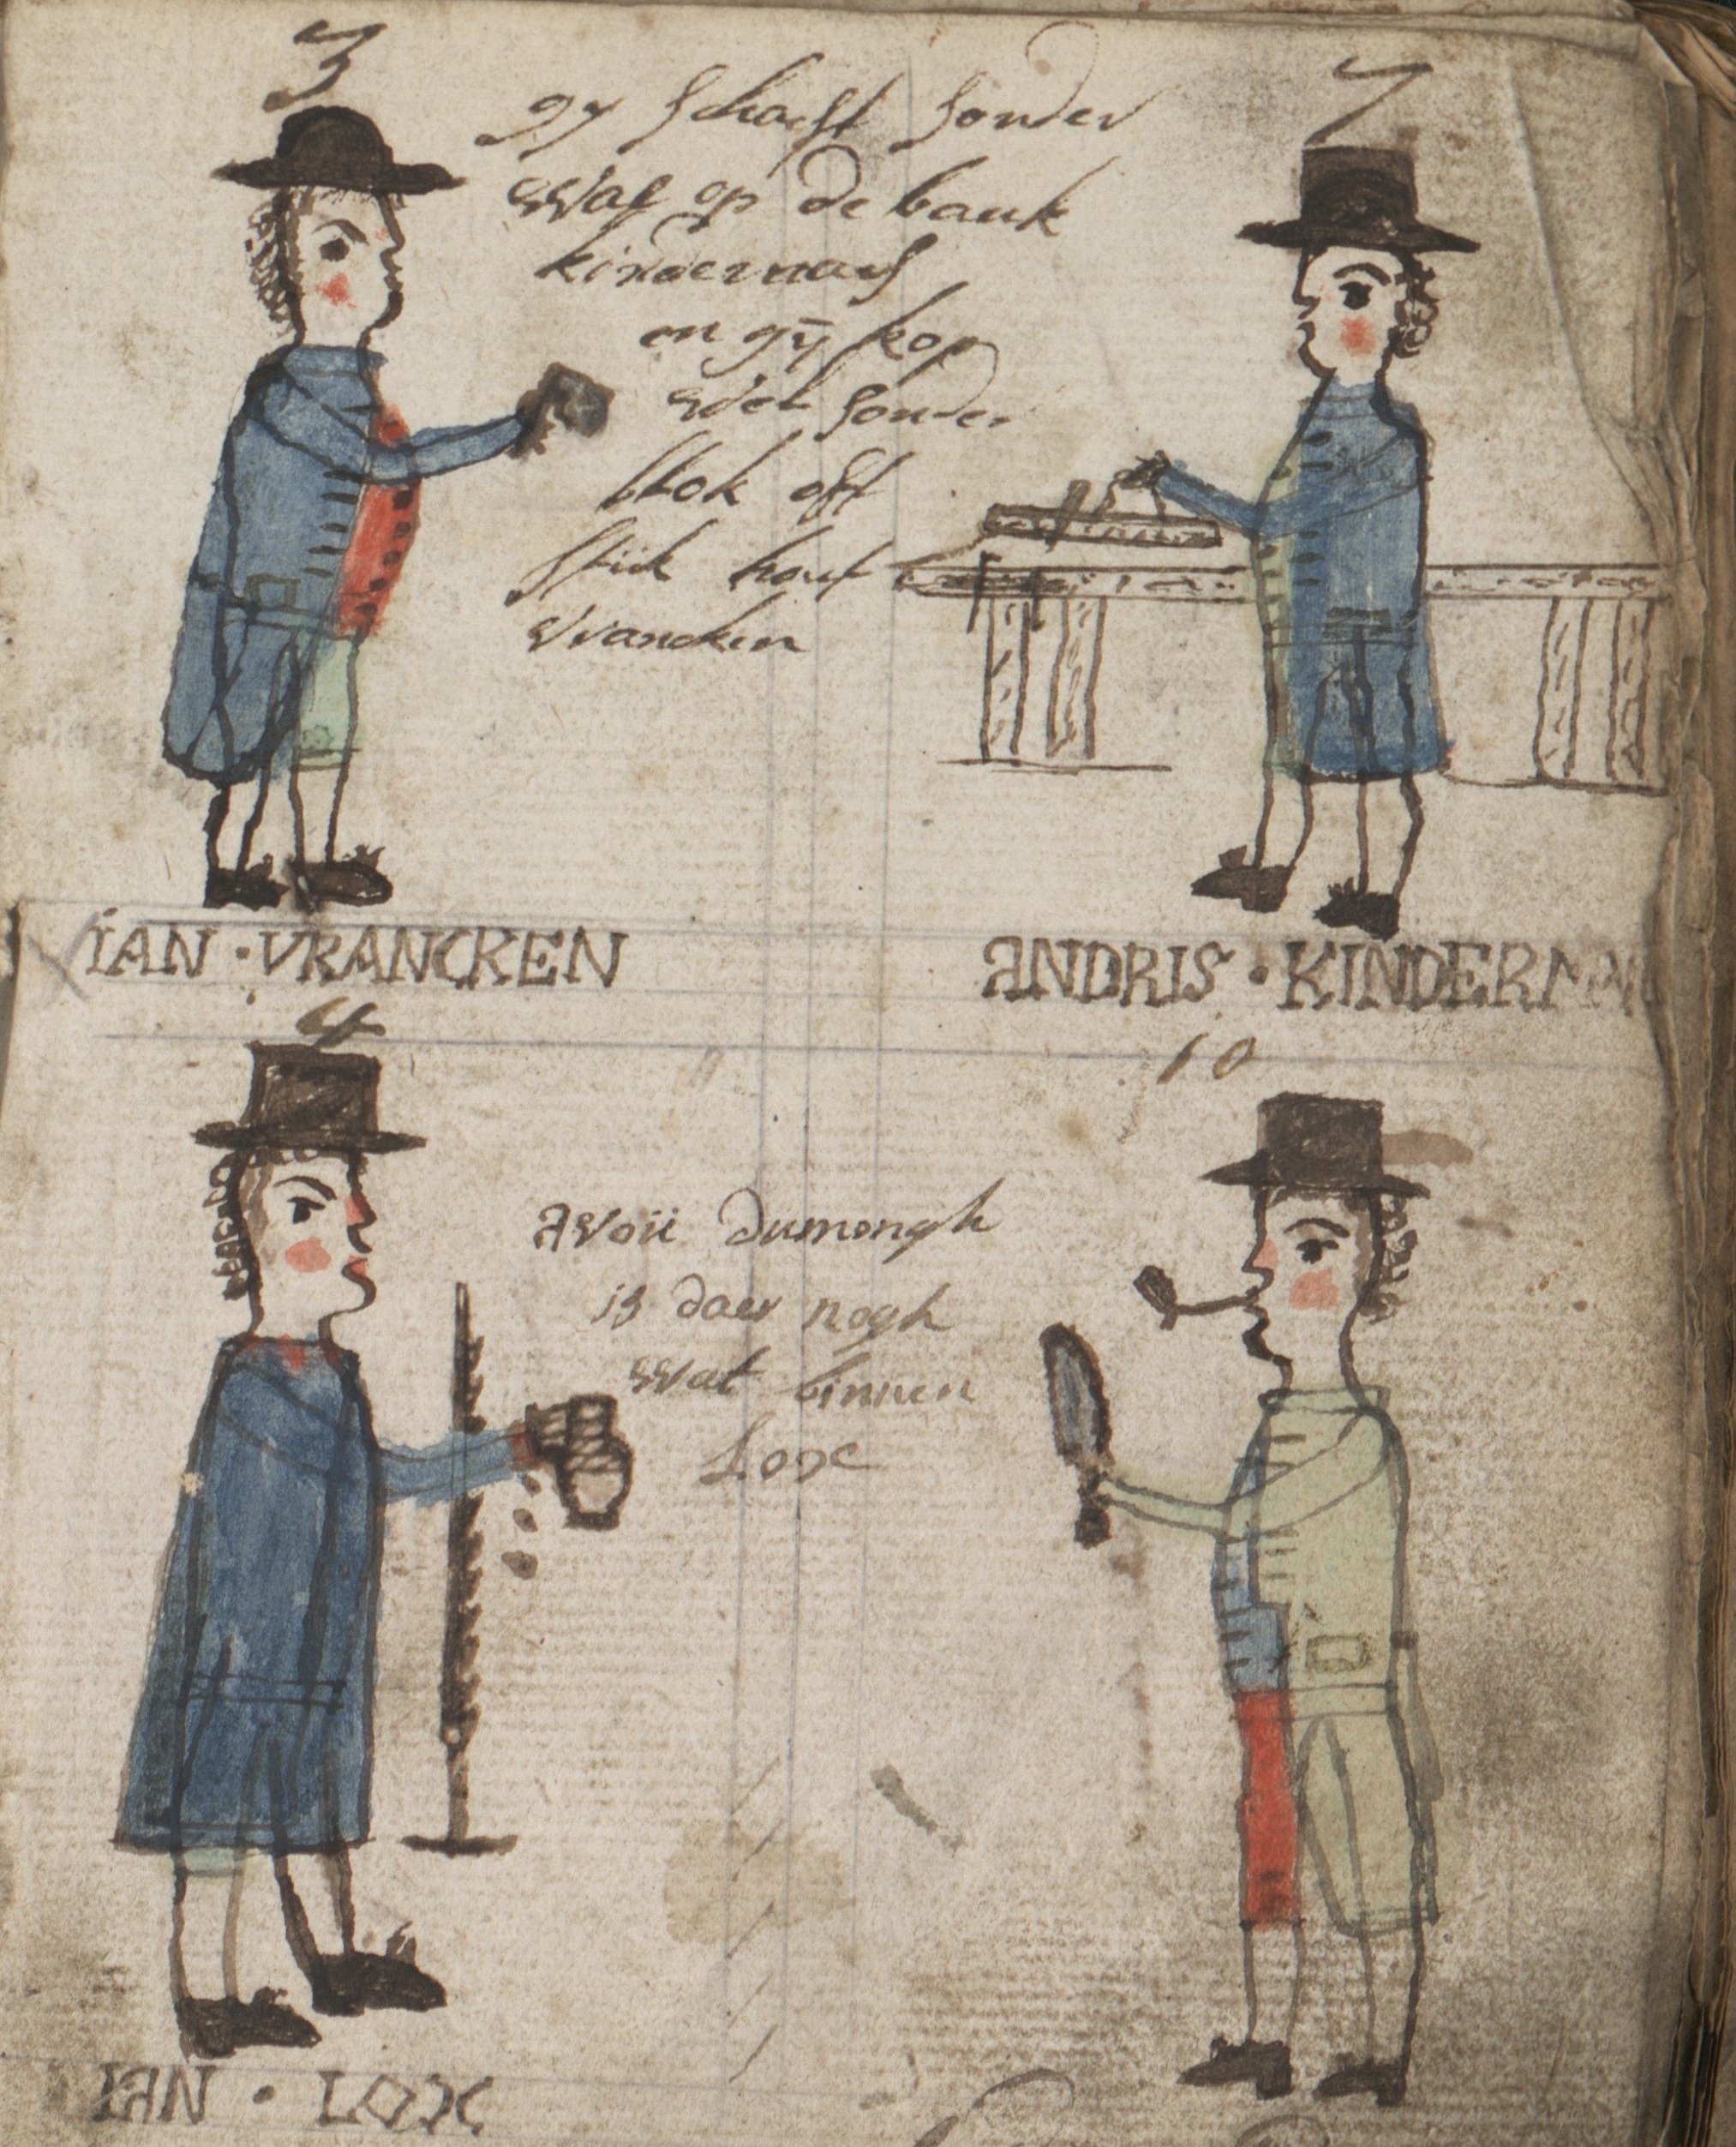 3
7
gÿ schaeft sonder
wat op de bank
kinderman
en gÿ kop
wel sonder
blok oft
stick hout
vrancken
IAN · VRANCKEN
ANDRIS · KINDERMA
4
10
avoii dumongh
is daer nogh
wat binnen
Lox
IAN · LOX